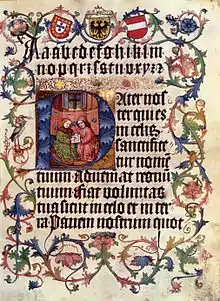 Aabcdefghiklm
nopqrſstuvxyz
Pater noſ
ter qui es
in celis
sanctifice
tur nomē
tuum adueniat regnū
tuum fiat voluntas
tua sicut in celo et in ter
ra Panem nostrum quot